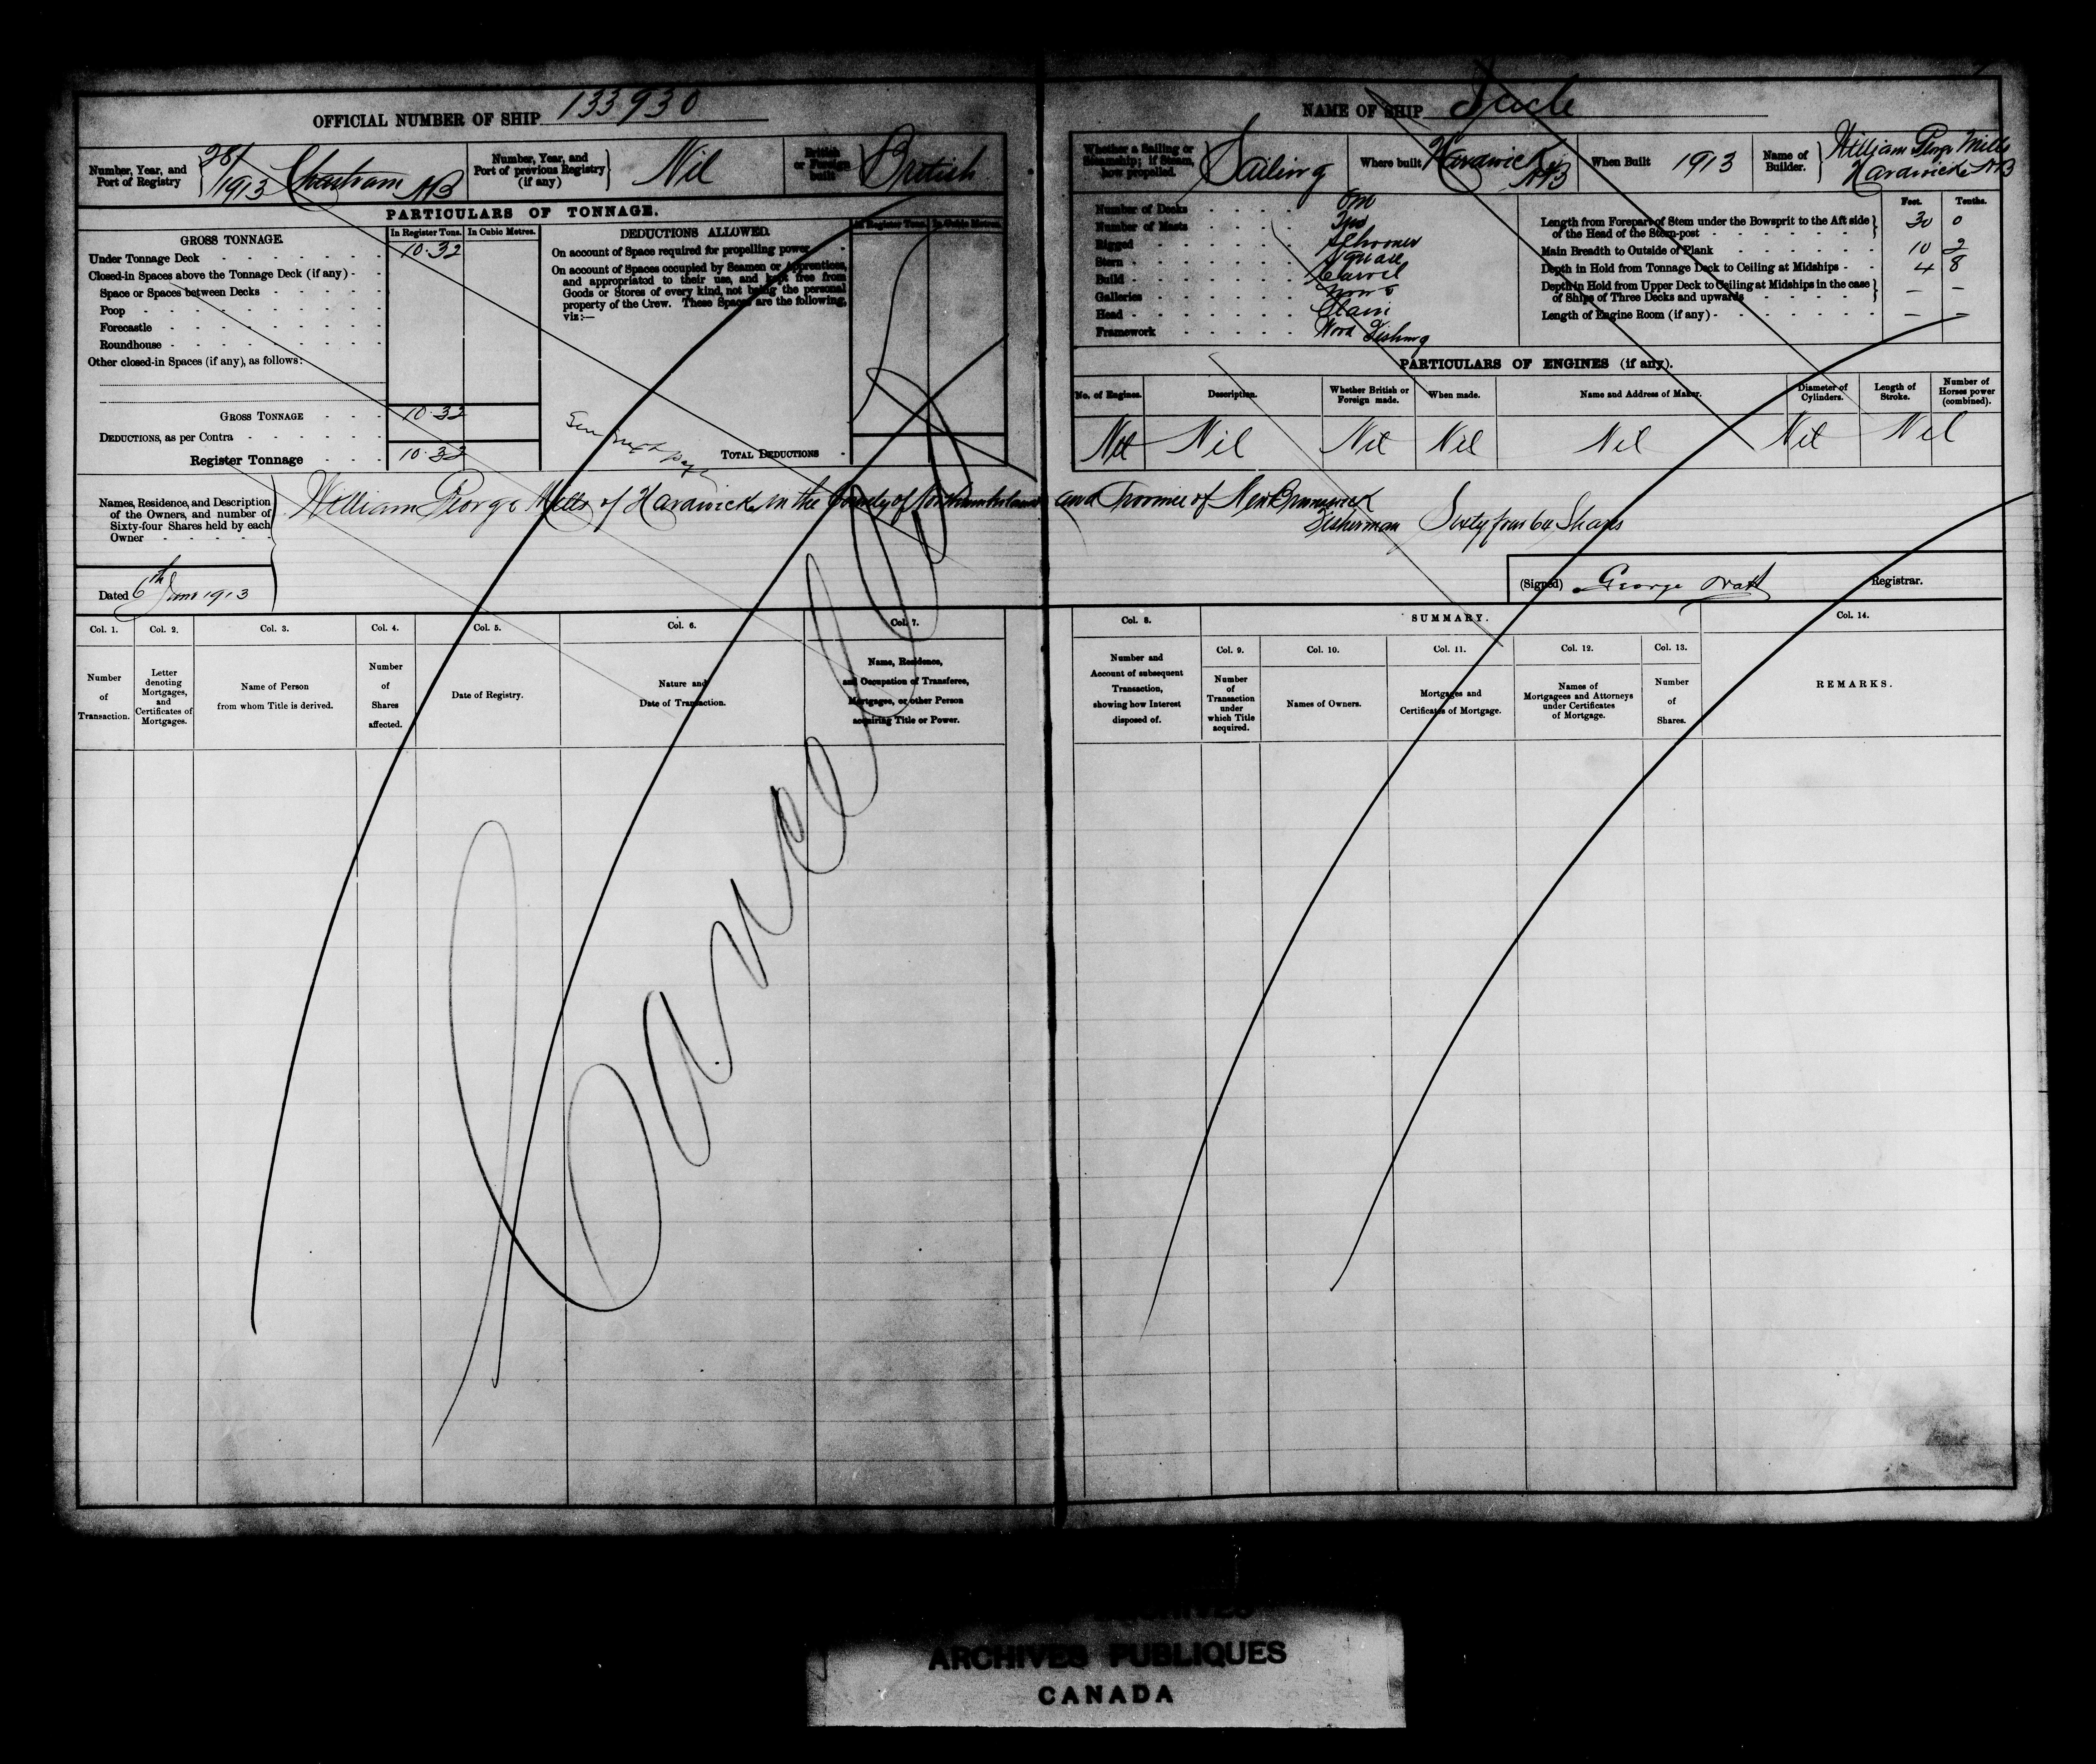 OFFICIAL NUMBER OF SHIP 133930
Number, Year, and Port of Registry 28/1913 Chatham NB
Number, Year, and Port of previous Registry (if any) Nil
British or Foreign built British
PARTICULARS OF TONNAGE.
GROSS TONNAGE.
In Register Tons. In Cubic Metres.
Under Tonnage Deck 10.32
Closed-in Spaces above the Tonnage Deck (if any)
Space or Spaces between Decks
Poop
Forecastle
Roundhouse
Other closed-in Spaces (if any), as follows:
GROSS TONNAGE 10.32
DEDUCTIONS, as per Contra
Register Tonnage 10.32
DEDUCTIONS ALLOWED.
In Register Tons. In Cubic Metres.
On account of Space required for propelling power
On account of Spaces occupied by Seamen or Apprentices,
and appropriated to their use, and kept free from
Goods or Stores of every kind, not being the personal
property of the Crew. These Spaces are the following,
viz:—
TOTAL DEDUCTIONS
NAME OF SHIP
Whether a Sailing or Steamship; if Steam, how propelled. Sailing
Where built Hardwicke NB
When Built 1913
Name of Builder. William George Mills Hardwicke NB
Number of Decks One
Number of Masts Two
Rigged Schooner
Stern Square
Build Carvel
Galleries None
Head Plain
Framework Wood Fishing
Feet. Tenths.
Length from Forepart of Stem under the Bowsprit to the Aft side of the Head of the Stern-post 30 0
Main Breadth to Outside of Plank 10 2
Depth in Hold from Tonnage Deck to Ceiling at Midships 4 8
Depth in Hold from Upper Deck to Ceiling at Midships in the case of Ships of Three Decks and upwards — —
Length of Engine Room (if any) — —
PARTICULARS OF ENGINES (if any).
No. of Engines. Description. Whether British or Foreign made. When made. Name and Address of Maker. Diameter of Cylinders. Length of Stroke. Number of Horses power (combined).
Nil Nil Nil Nil Nil Nil Nil
Names, Residence, and Description of the Owners, and number of Sixty-four Shares held by each Owner
William George Mills of Hardwicke in the County of Northumberland and Province of New Brunswick
Fisherman Sixty four 64 Shares
Dated 6th June 1913
(Signed) George Watt Registrar.
Cancelled
Col. 1. Col. 2. Col. 3. Col. 4. Col. 5. Col. 6. Col. 7.
Number of Transaction.
Letter denoting Mortgages, and Certificates of Mortgages.
Name of Person from whom Title is derived.
Number of Shares affected.
Date of Registry.
Nature and Date of Transaction.
Name, Residence, and Occupation of Transferee, Mortgagee, or other Person acquiring Title or Power.
Col. 8. SUMMARY. Col. 14.
Col. 9. Col. 10. Col. 11. Col. 12. Col. 13.
Number and Account of subsequent Transaction, showing how Interest disposed of.
Number of Transaction under which Title acquired.
Names of Owners.
Mortgages and Certificates of Mortgage.
Names of Mortgagees and Attorneys under Certificates of Mortgage.
Number of Shares.
REMARKS.
ARCHIVES PUBLIQUES
CANADA